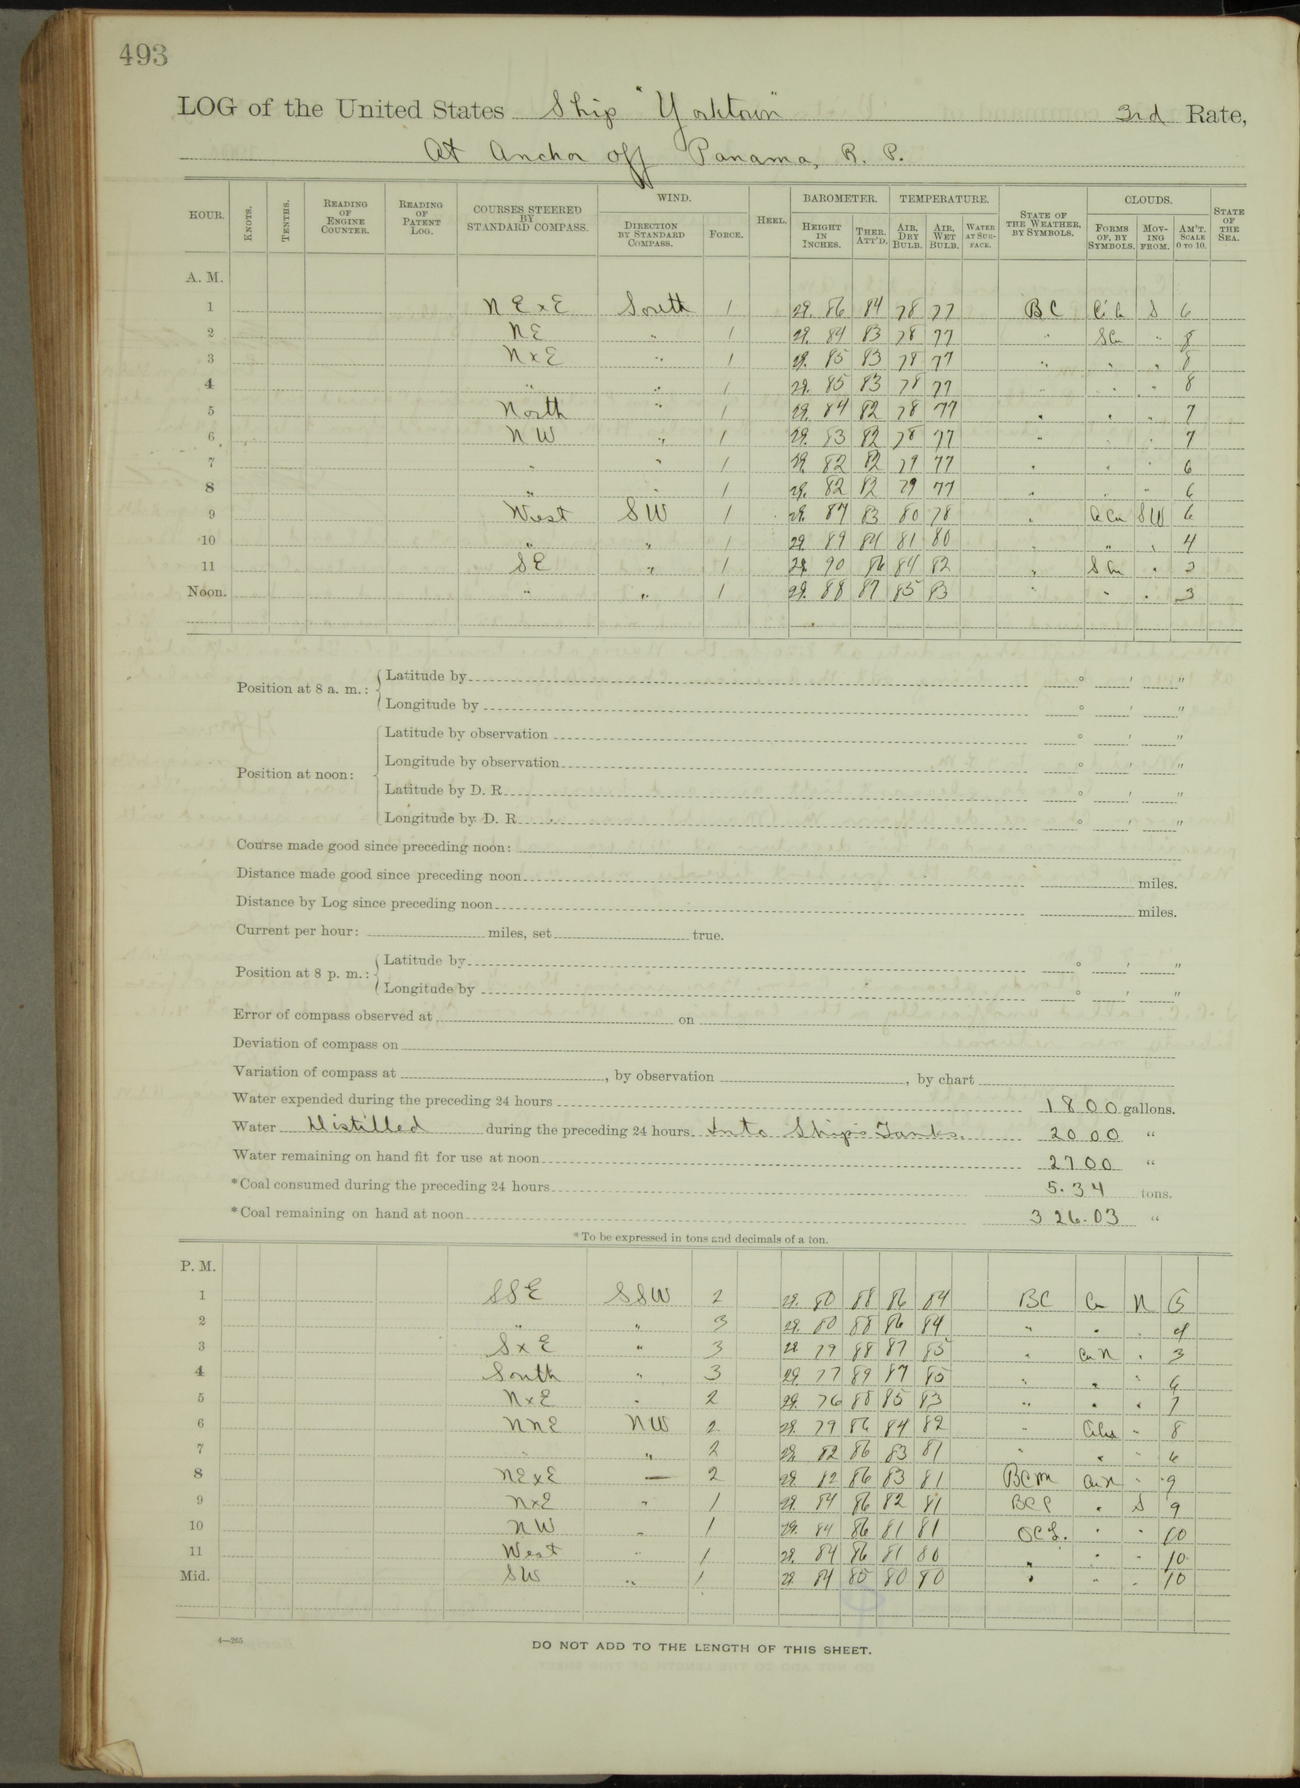 493
LOG of the United States Ship "Yorktown" 3rd Rate,
At Anchor off Panama, R. P.
HOUR. KNOTS. TENTHS. READING OF ENGINE COUNTER. READING OF PATENT LOG. COURSES STEERED BY STANDARD COMPASS. WIND. DIRECTION BY STANDARD COMPASS. FORCE. HEEL. BAROMETER. HEIGHT IN INCHES. THER. ATT'D. TEMPERATURE. AIR, DRY BULB. AIR, WET BULB. WATER AT SURFACE. STATE OF THE WEATHER, BY SYMBOLS. CLOUDS. FORMS OF, BY SYMBOLS. MOVING FROM. AM'T. SCALE 0 TO 10. STATE OF THE SEA.
A. M.
1 NExE South 1 29. 86 84 78 77 BC S 6
2 NE " 1 29. 84 83 78 77 " SCu " 8
3 NxE " 1 29. 85 83 78 77 " " " 8
4 " " 1 29. 85 83 78 77 " " " 8
5 North " 1 29. 84 82 78 77 " " " 7
6 NW " 1 29. 83 82 78 77 " " " 7
7 " " 1 29. 82 82 79 77 " " " 6
8 " " 1 29. 82 82 79 77 " " " 6
9 West SW 1 29. 87 83 80 78 " SW 6
10 " " 1 29. 89 84 81 80 " " " 4
11 SE " 1 29. 90 86 84 82 " SCu "
Noon. " " 1 29. 88 87 85 83 " " " 3
Position at 8 a. m.: Latitude by ° ' "
Longitude by ° ' "
Position at noon: Latitude by observation ° ' "
Longitude by observation ° ' "
Latitude by D. R. ° ' "
Longitude by D. R. ° ' "
Course made good since preceding noon:
Distance made good since preceding noon miles.
Distance by Log since preceding noon miles.
Current per hour: miles, set true.
Position at 8 p. m.: Latitude by ° ' "
Longitude by ° ' "
Error of compass observed at on
Deviation of compass on
Variation of compass at , by observation , by chart
Water expended during the preceding 24 hours 1800 gallons.
Water Distilled during the preceding 24 hours Into Ship's Tanks. 2000 "
Water remaining on hand fit for use at noon 2700 "
*Coal consumed during the preceding 24 hours 5.34 tons.
*Coal remaining on hand at noon 326.03 "
*To be expressed in tons and decimals of a ton.
P. M.
1 SSE SSW 2 29. 80 88 86 84 BC Cu N
2 " " 3 29. 80 88 86 84 " " " 4
3 SxE " 3 29 79 88 87 85 " CuN " 3
4 South " 3 29. 77 89 87 85 " " " 6
5 NxE " 2 29. 76 88 85 83 " " " 7
6 NNE NW 2 29. 79 86 84 82 " " 8
7 " " 2 29. 82 86 83 81 " " " 6
8 NExE — 2 29. 82 86 83 81 BCM CuN " 9
9 NxE " 1 29. 84 86 82 81 BCP " S 9
10 NW " 1 29. 84 86 81 81 OCL. " " 10
11 West " 1 29. 84 86 81 80 " " " 10
Mid. SW " 1 29. 84 85 80 80 " " " 10
4—265
DO NOT ADD TO THE LENGTH OF THIS SHEET.